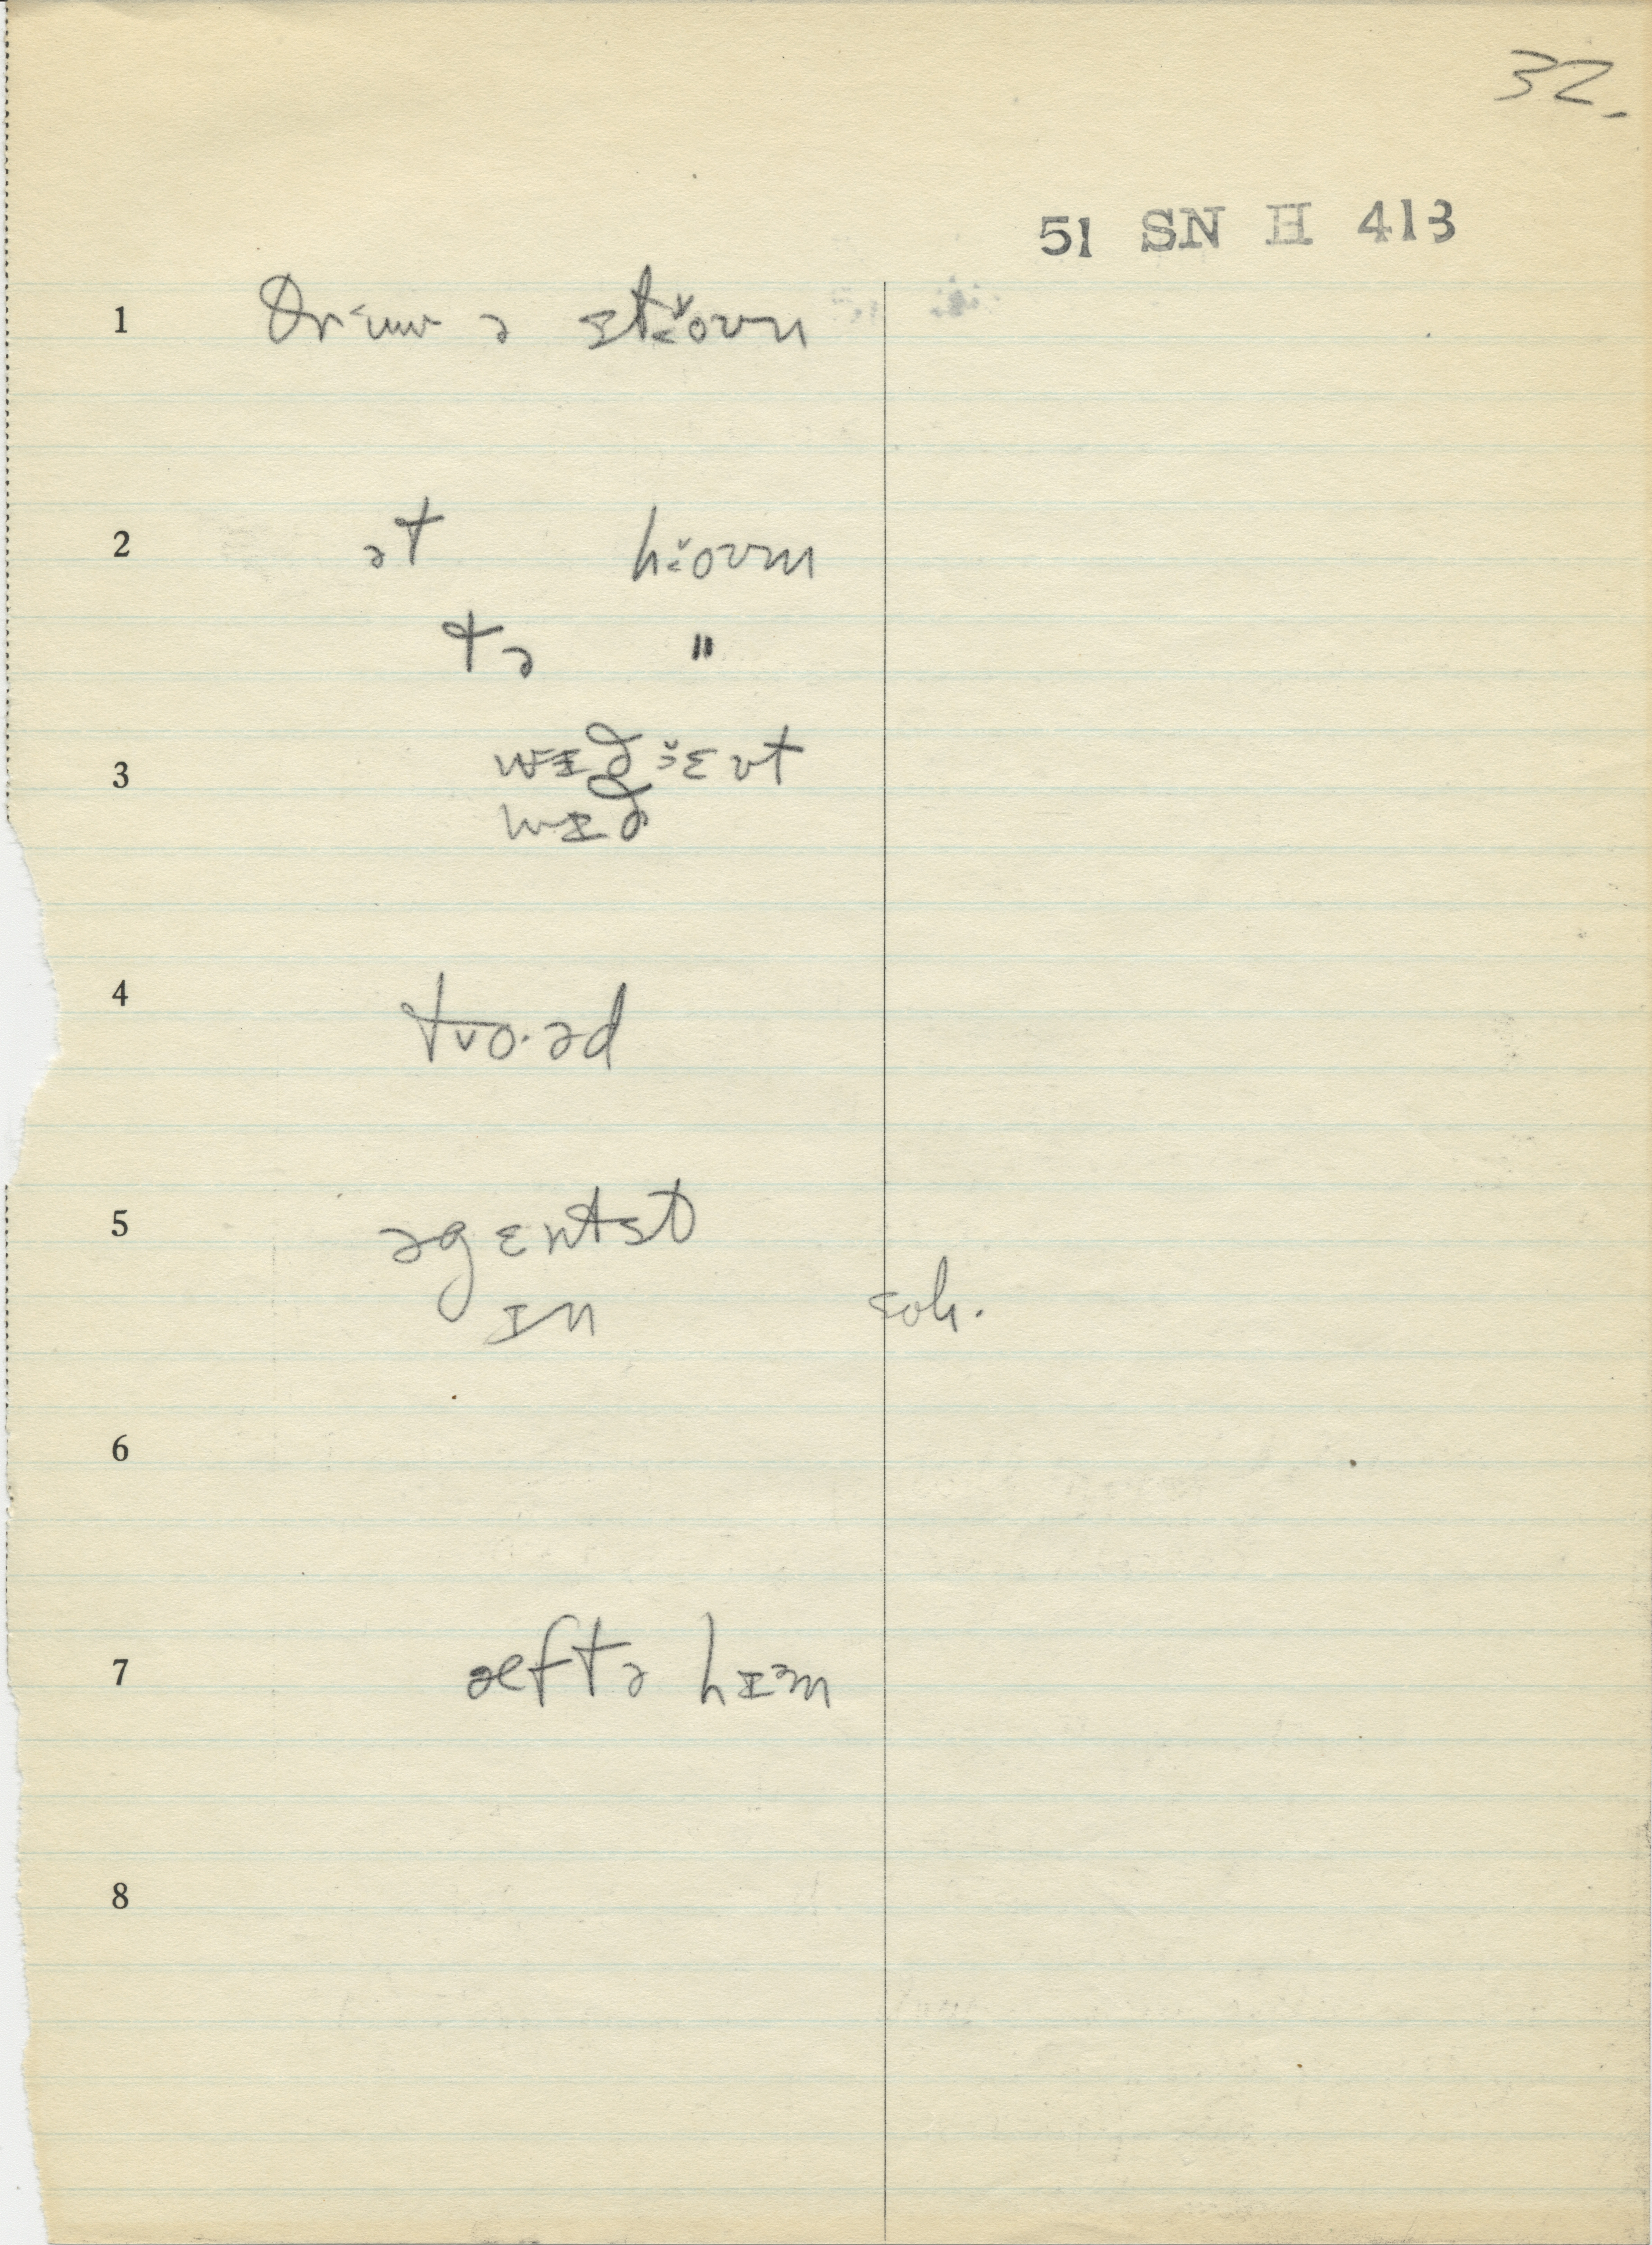 32.
51 SN H 413
1 θrɨʉu ə stɔ̌oʊn
2 ət hɔ̌oʊm
tə "
3 wɪðɛ̌ʊt
wɪð
4 tvo.əd
5 əgɛntst
ɪn coh.
6
7 æftə hɪᵊm
8